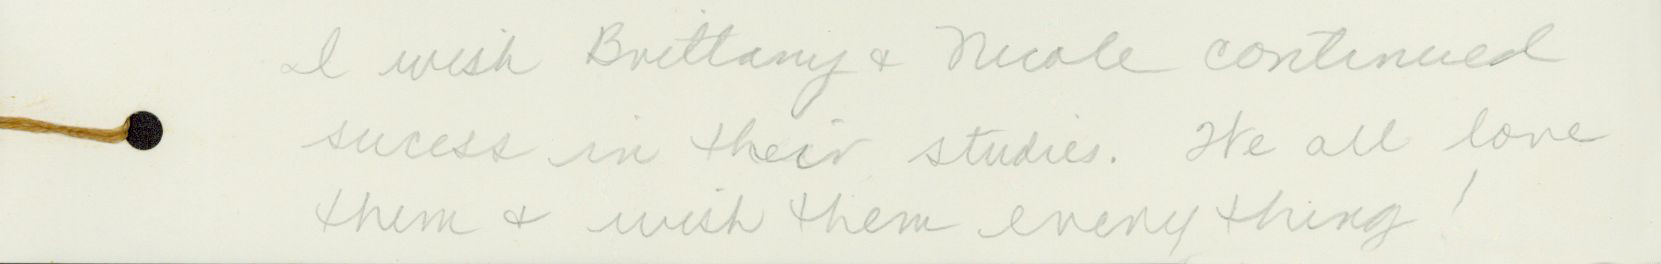 I wish Brittany & Nicole continued
sucess in their studies. We all love
them & wish them every thing!